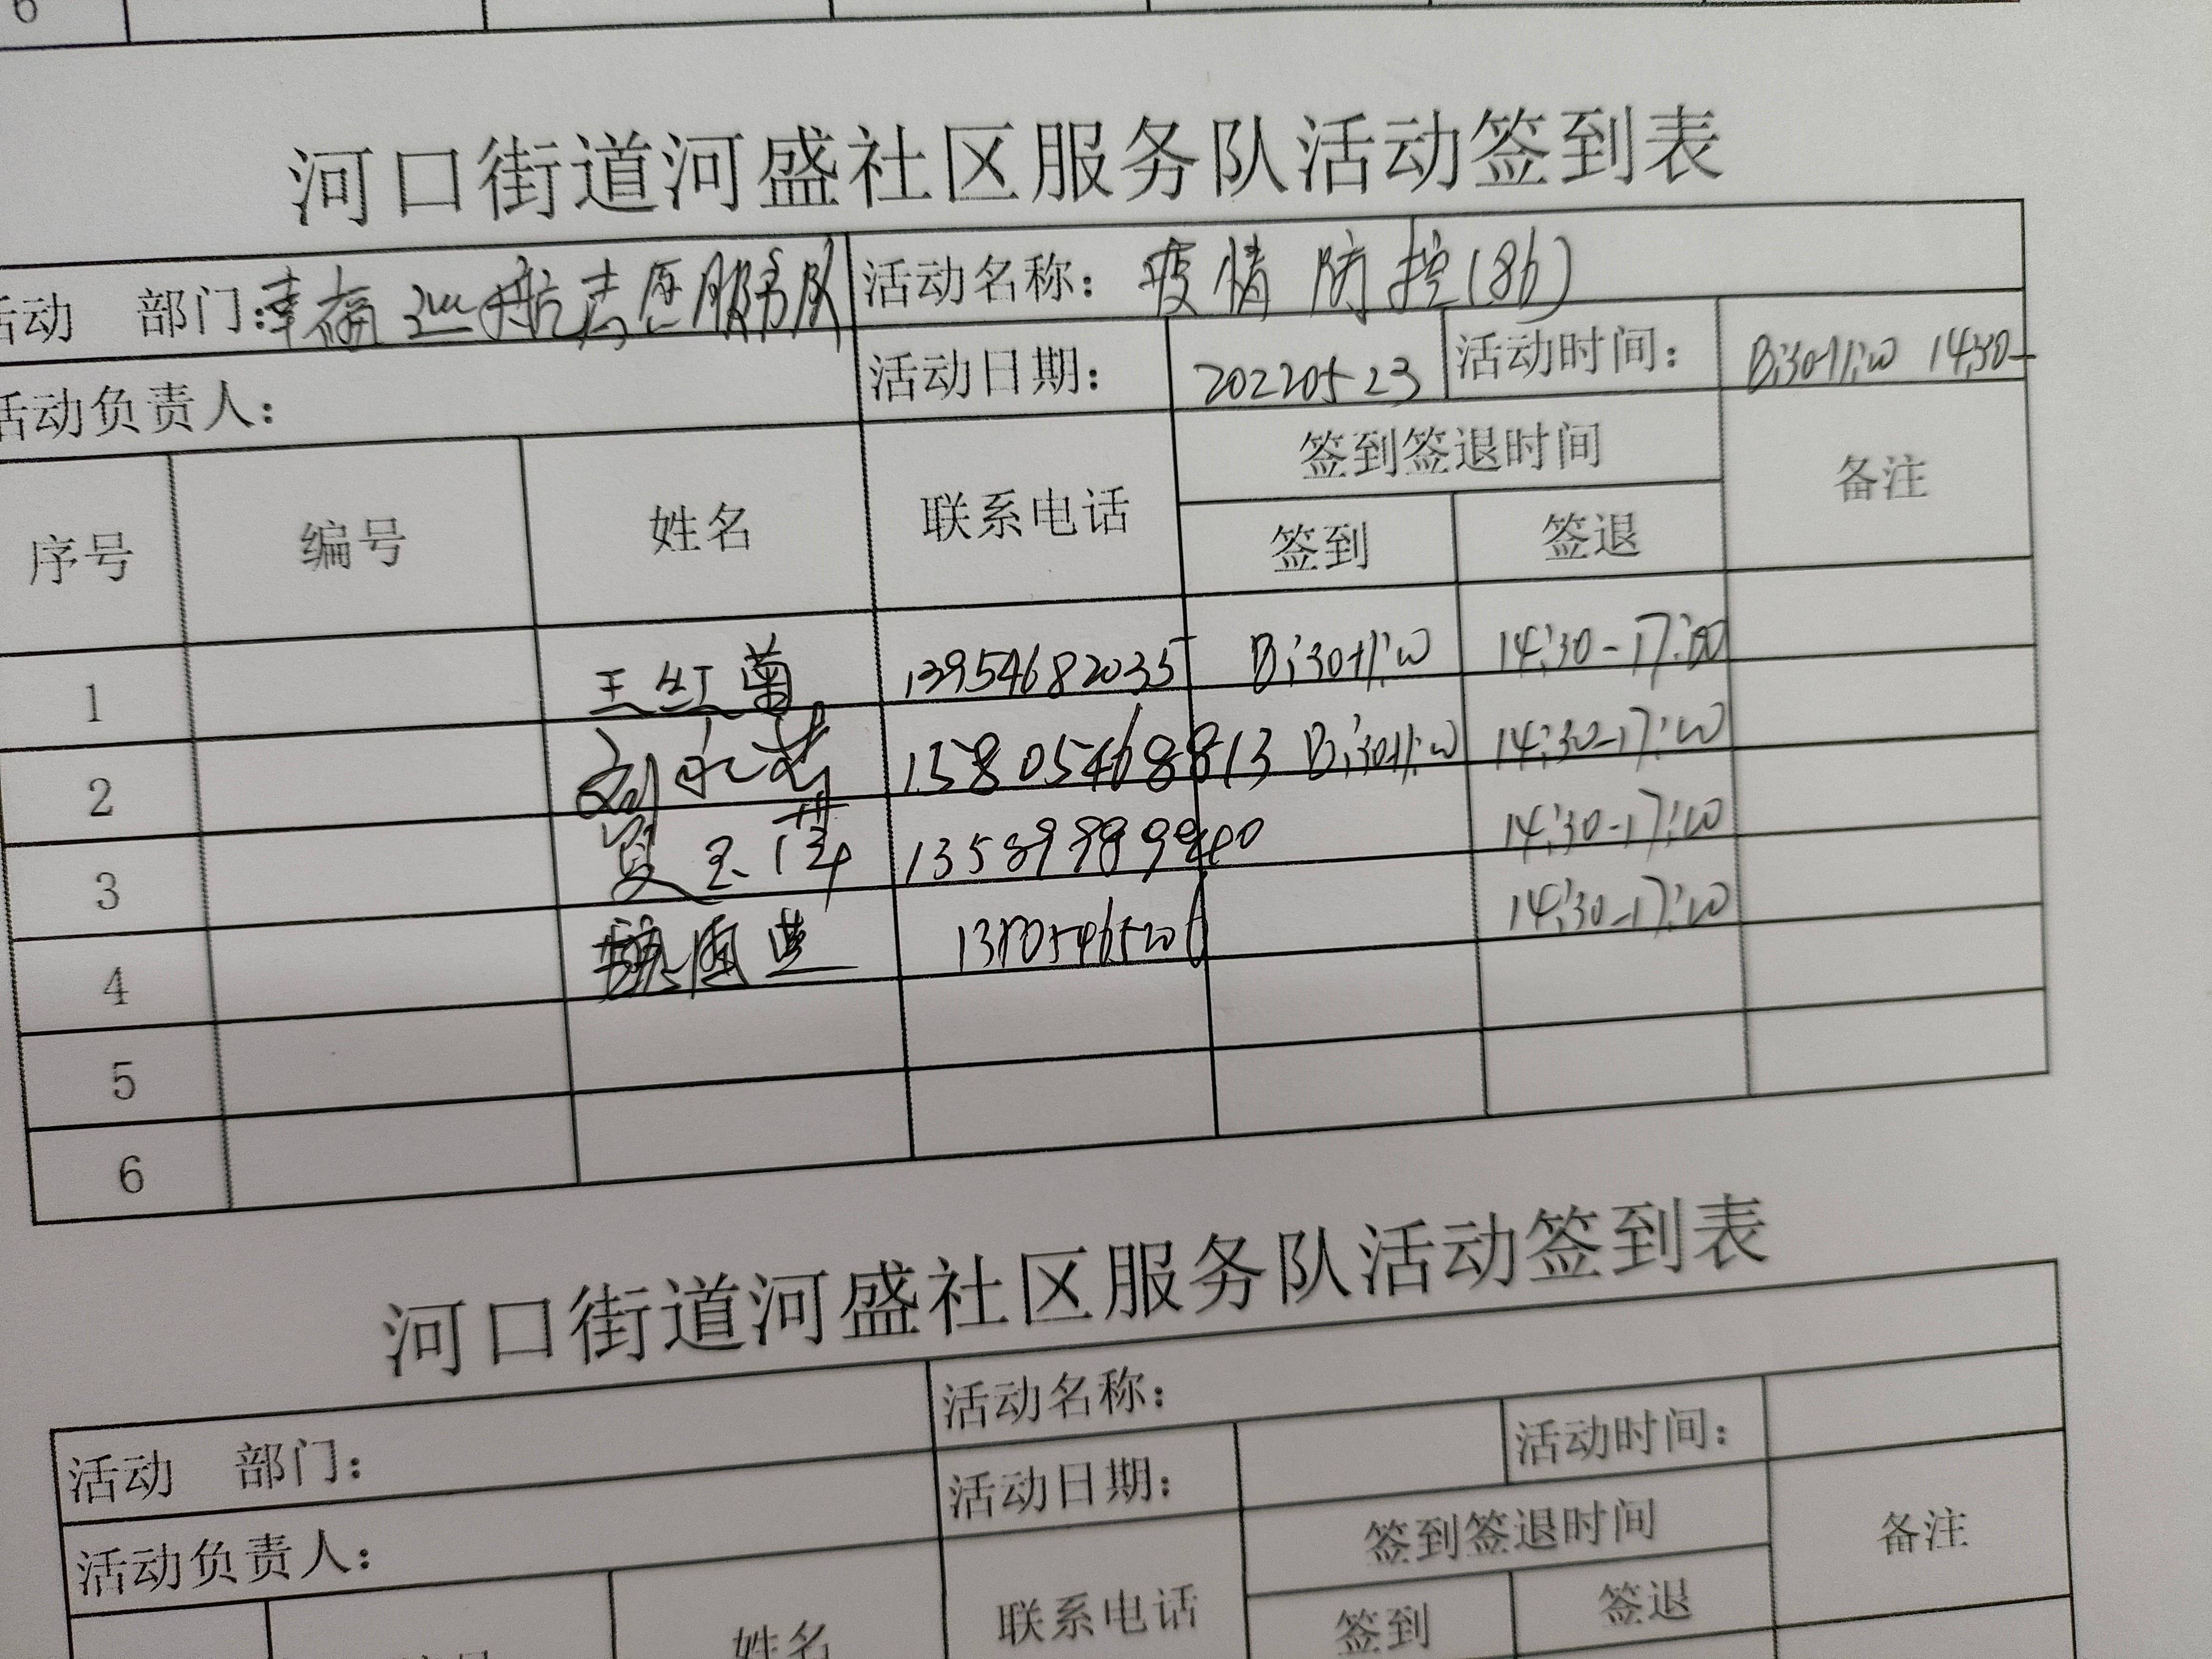 6
河口街道河盛社区服务队活动签到表
活动 部门:幸福巡航志愿服务队 活动名称: 疫情防控(86)
活动负责人: 活动日期: 20220523 活动时间: 8:30-11:00 14:30-
序号 编号 姓名 联系电话 签到签退时间 备注
签到 签退
1 王红菊 13954682035 8:30-11:00 14:30-17:00
2 刘永芳 15805468813 8:30-11:00 14:30-17:00
3 夏玉萍 14:30-17:00
4 14:30-17:00
5
6
河口街道河盛社区服务队活动签到表
活动 部门: 活动名称:
活动负责人: 活动日期: 活动时间:
姓名 联系电话 签到签退时间 备注
签到 签退